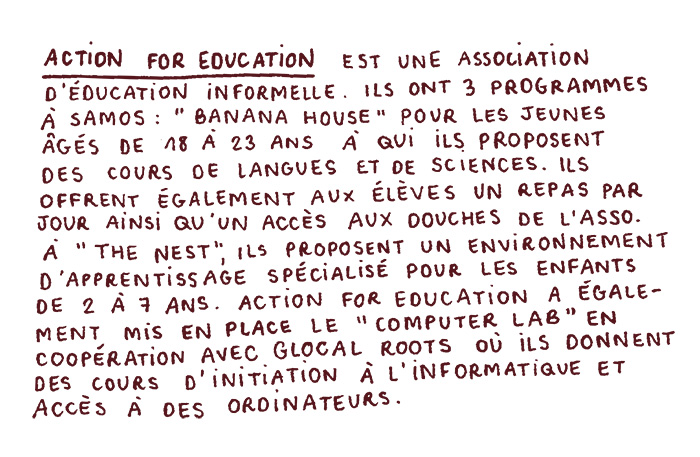 ACTION FOR EDUCATION EST UNE ASSOCIATION
D'ÉDUCATION INFORMELLE. ILS ONT 3 PROGRAMMES
À SAMOS : "BANANA HOUSE" POUR LES JEUNES
ÂGÉS DE 18 À 23 ANS À QUI ILS PROPOSENT
DES COURS DE LANGUES ET DE SCIENCES. ILS
OFFRENT ÉGALEMENT AUX ÉLÈVES UN REPAS PAR
JOUR AINSI QU'UN ACCÈS AUX DOUCHES DE L'ASSO.
À "THE NEST", ILS PROPOSENT UN ENVIRONNEMENT
D'APPRENTISSAGE SPÉCIALISÉ POUR LES ENFANTS
DE 2 À 7 ANS. ACTION FOR EDUCATION A ÉGALE-
MENT MIS EN PLACE LE "COMPUTER LAB" EN
COOPÉRATION AVEC GLOCAL ROOTS OÙ ILS DONNENT
DES COURS D'INITIATION À L'INFORMATIQUE ET
ACCÈS À DES ORDINATEURS.